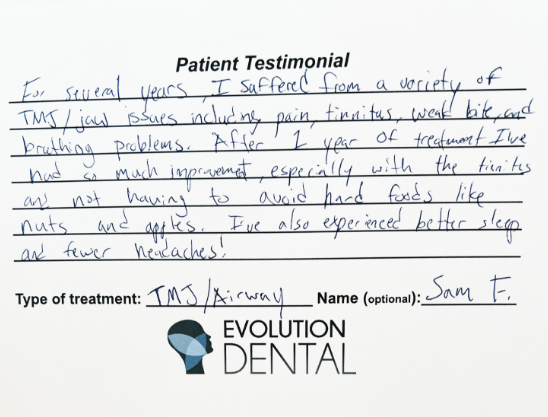 Patient Testimonial
For several years, I suffered from a variety of
TMJ/jaw issues including pain, tinnitus, weak bite, and
brathing problems. After 1 year of treatment I've
had so much improvemet, especially with the tinnitus
and not having to avoid hard foods like
nuts and apples. I've also experienced better sleep
and fewer headaches!
Type of treatment: TMJ/Airway Name (optional): Sam F.
EVOLUTION
DENTAL